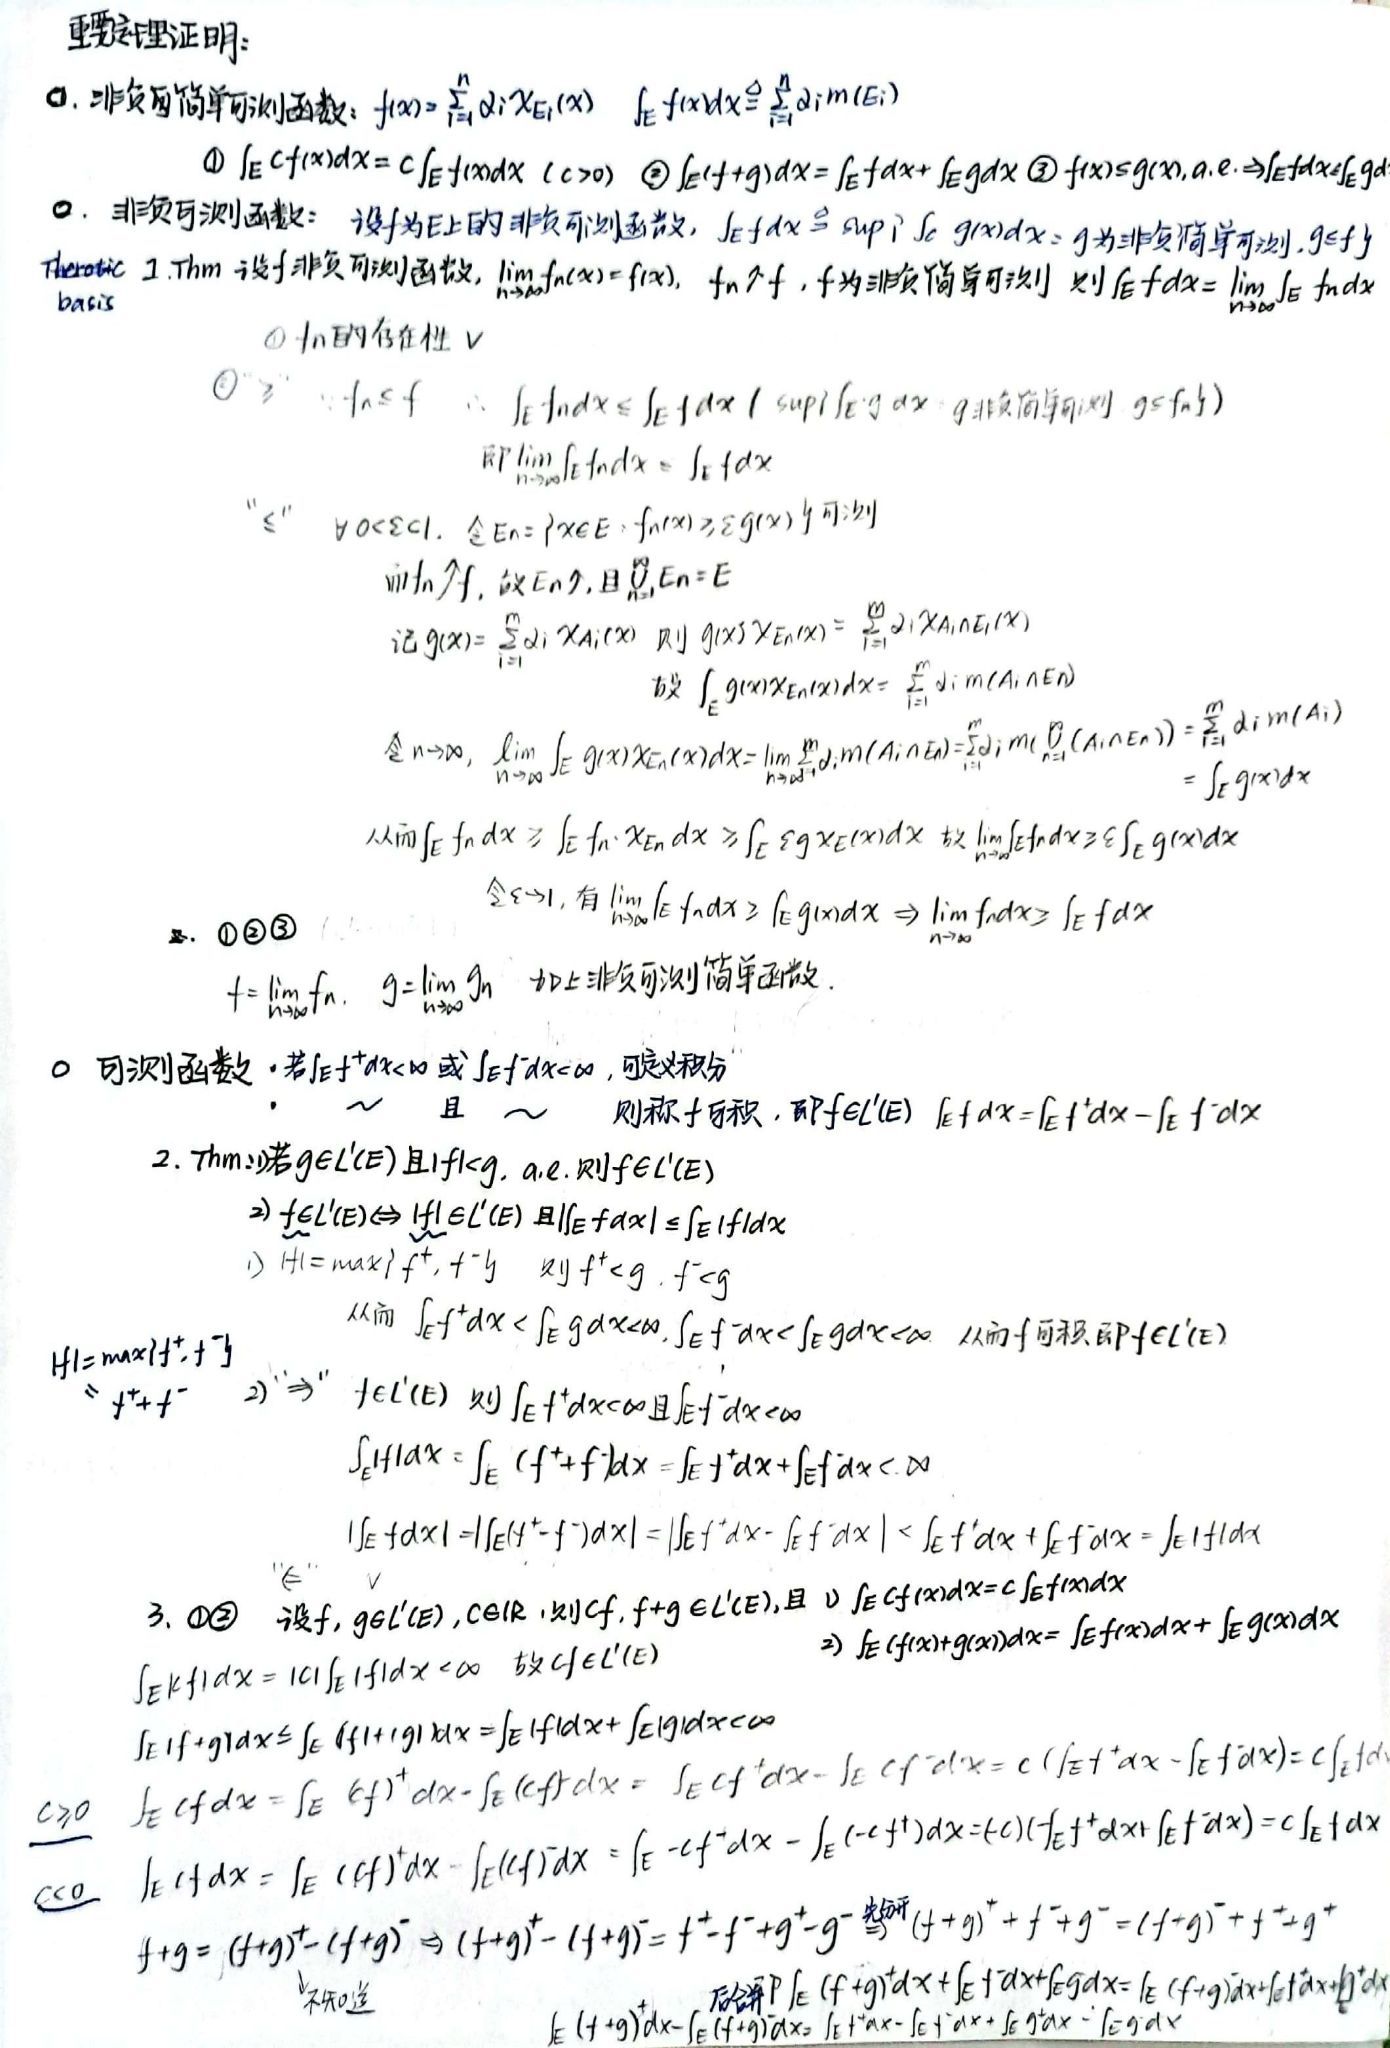 重要定理证明:
0. 非负可简单可测函数: f(x)=∑_{i=1}^{n} αi χEi(x) ∫_E f(x)dx ≜ ∑_{i=1}^{n} αi m(Ei)
① ∫_E cf(x)dx = c∫_E f(x)dx (c>0) ② ∫_E(f+g)dx = ∫_E fdx + ∫_E gdx ③ f(x)≤g(x), a.e. ⇒ ∫_E fdx≤∫_E gd
0. 非负可测函数: 设f为E上的非负可测函数, ∫_E fdx ≜ sup{∫_E g(x)dx: g为非负简单可测, g≤f}
basis 1. Thm 设f非负可测函数, lim_{n→∞} fn(x)=f(x), fn↗f, f为非负简单可测 则∫_E fdx = lim_{n→∞} ∫_E fndx
① fn的存在性 √
② "≥" ∵ fn≤f ∴ ∫_E fndx ≤ ∫_E fdx ( sup{∫_E g dx: g非负简单可测 g≤fn})
即 lim_{n→∞} ∫_E fndx ≤ ∫_E fdx
"≤" ∀0<ε<1, 令En={x∈E: fn(x)≥εg(x)}可测
而fn↗f, 故En↗, 且 ⋃_{n=1}^{∞} En=E
记g(x)=∑_{i=1}^{m} αi χAi(x) 则 g(x)χEn(x) = ∑_{i=1}^{m} αi χAi∩Ei(x)
故 ∫_E g(x)χEn(x)dx = ∑_{i=1}^{m} αi m(Ai∩En)
令n→∞, lim_{n→∞} ∫_E g(x)χEn(x)dx = lim_{n→∞} ∑_{i=1}^{m} αi m(Ai∩En) = ∑_{i=1}^{m} αi m(⋃_{n=1}^{∞}(Ai∩En)) = ∑_{i=1}^{m} αi m(Ai)
= ∫_E g(x)dx
从而∫_E fn dx ≥ ∫_E fn·χEn dx ≥ ∫_E εgχE(x)dx 故 lim_{n→∞} ∫_E fndx ≥ ε∫_E g(x)dx
令ε→1, 有 lim_{n→∞} ∫_E fndx ≥ ∫_E g(x)dx ⇒ lim_{n→∞} fndx ≥ ∫_E fdx
2. ①②③
f=lim_{n→∞} fn. g=lim_{n→∞} gn 加上非负可测简单函数.
0 可测函数 · 若∫_E f⁺dx<∞ 或 ∫_E f⁻dx<∞, 可定义积分
· ~ 且 ~ 则称f可积, 即f∈L'(E) ∫_E fdx=∫_E f⁺dx-∫_E f⁻dx
2. Thm: 1) 若g∈L'(E) 且|f|<g, a.e. 则f∈L'(E)
2) f∈L'(E) ⇔ |f|∈L'(E) 且|∫_E fdx| ≤ ∫_E |f|dx
1) |f|=max{f⁺, f⁻} 则 f⁺<g, f⁻<g
从而 ∫_E f⁺dx < ∫_E gdx<∞, ∫_E f⁻dx<∫_E gdx<∞ 从而f可积 即f∈L'(E)
|f|=max{f⁺, f⁻}
= f⁺+f⁻
2) "⇒" f∈L'(E) 则 ∫_E f⁺dx<∞且∫_E f⁻dx<∞
∫_E |f|dx = ∫_E (f⁺+f⁻)dx = ∫_E f⁺dx+∫_E f⁻dx<∞
|∫_E fdx| = |∫_E(f⁺-f⁻)dx| = |∫_E f⁺dx - ∫_E f⁻dx| < ∫_E f⁺dx + ∫_E f⁻dx = ∫_E |f|dx
"⇐" √
3. ①② 设f, g∈L'(E), C∈ℝ, 则cf, f+g∈L'(E), 且 1) ∫_E cf(x)dx=c∫_E f(x)dx
2) ∫_E (f(x)+g(x))dx = ∫_E f(x)dx + ∫_E g(x)dx
∫_E |cf|dx = |c|∫_E |f|dx<∞ 故 cf∈L'(E)
∫_E |f+g|dx ≤ ∫_E (|f|+|g|)dx = ∫_E |f|dx + ∫_E |g|dx<∞
c≥0 ∫_E cfdx = ∫_E (cf)⁺dx - ∫_E (cf)⁻dx = ∫_E cf⁺dx - ∫_E cf⁻dx = c(∫_E f⁺dx - ∫_E f⁻dx) = c∫_E fd
c<0 ∫_E cfdx = ∫_E (cf)⁺dx - ∫_E (cf)⁻dx = ∫_E -cf⁻dx - ∫_E (-cf⁺)dx = (-c)(-∫_E f⁺dx+∫_E f⁻dx) = c∫_E fdx
f+g = (f+g)⁺-(f+g)⁻ ⇒ (f+g)⁺-(f+g)⁻ = f⁺-f⁻+g⁺-g⁻ 先分开 ⇒ (f+g)⁺+f⁻+g⁻ = (f+g)⁻+f⁺+g⁺
↓不知道
后合并 即 ∫_E (f+g)⁺dx+∫_E f⁻dx+∫_E g⁻dx = ∫_E (f+g)⁻dx+∫_E f⁺dx+∫g⁺dx
∫_E (f+g)⁺dx-∫_E (f+g)⁻dx = ∫_E f⁺dx-∫_E f⁻dx+∫_E g⁺dx-∫_E g⁻dx